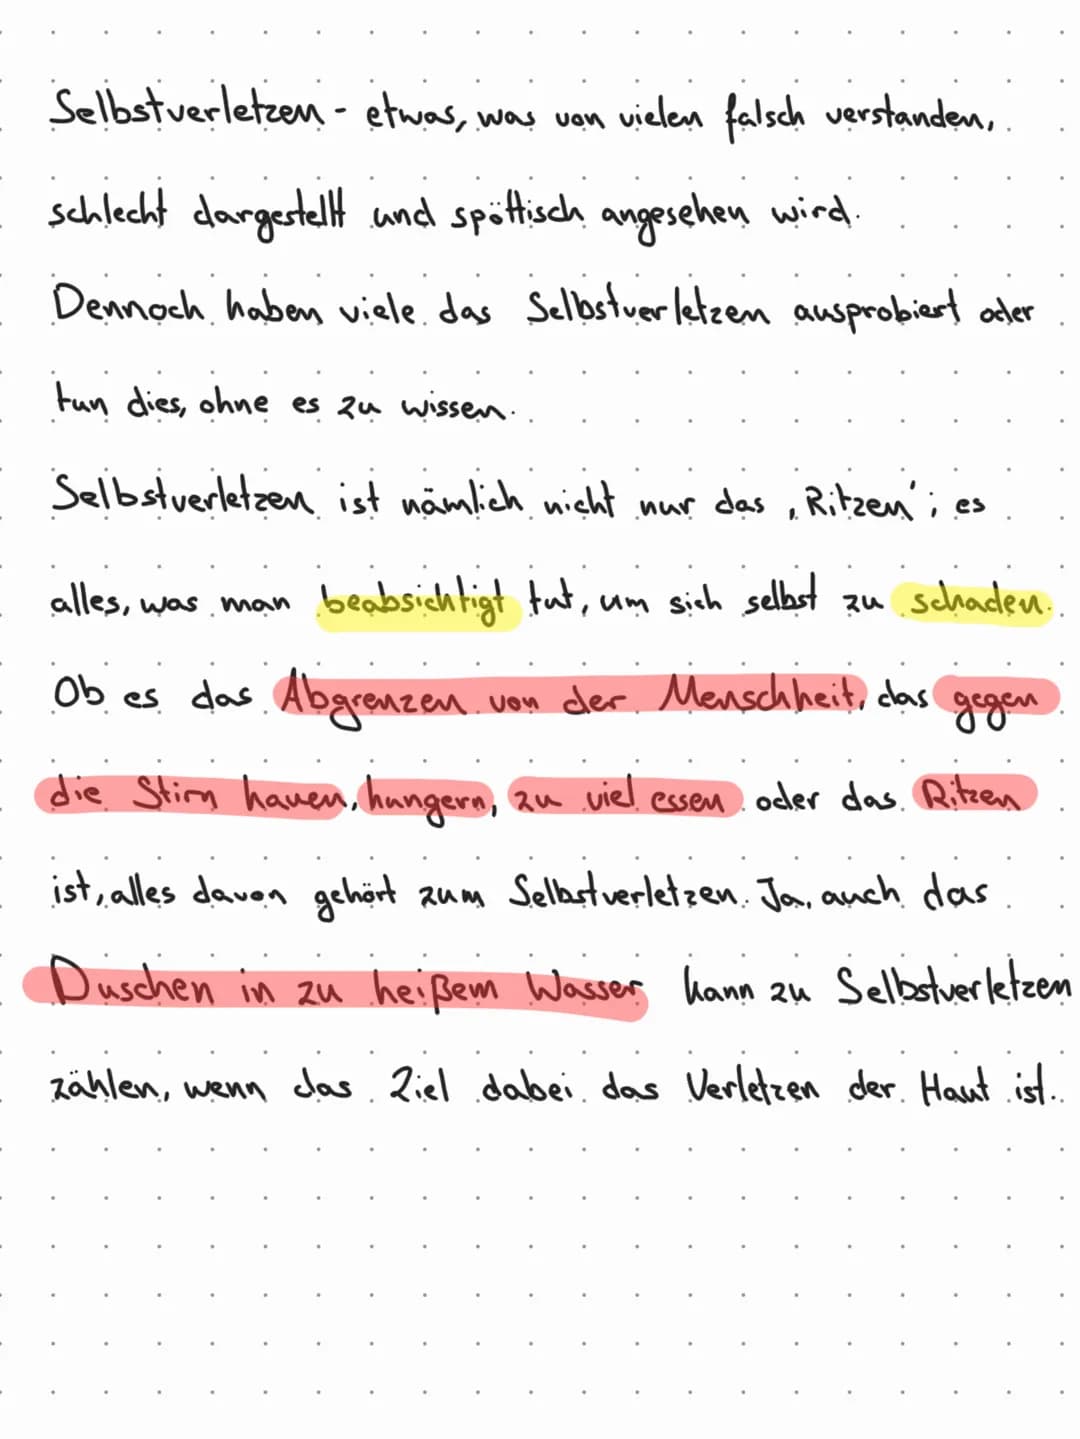 Selbstverletzen - etwas, was von vielen falsch verstanden,
schlecht dargestellt und spöttisch angesehen wird.
Dennoch haben viele das Selbstverletzen ausprobiert oder
tun dies, ohne es zu wissen.
Selbstverletzen ist nämlich nicht nur das ‚Ritzen'; es
alles, was man beabsichtigt tut, um sich selbst zu schaden.
Ob es das Abgrenzen von der Menschheit, das gegen
die Stirn hauen, hungern, zu viel essen oder das Ritzen
ist, alles davon gehört zum Selbstverletzen. Ja, auch das
Duschen in zu heißem Wasser kann zu Selbstverletzen
zählen, wenn das Ziel dabei das Verletzen der Haut ist.